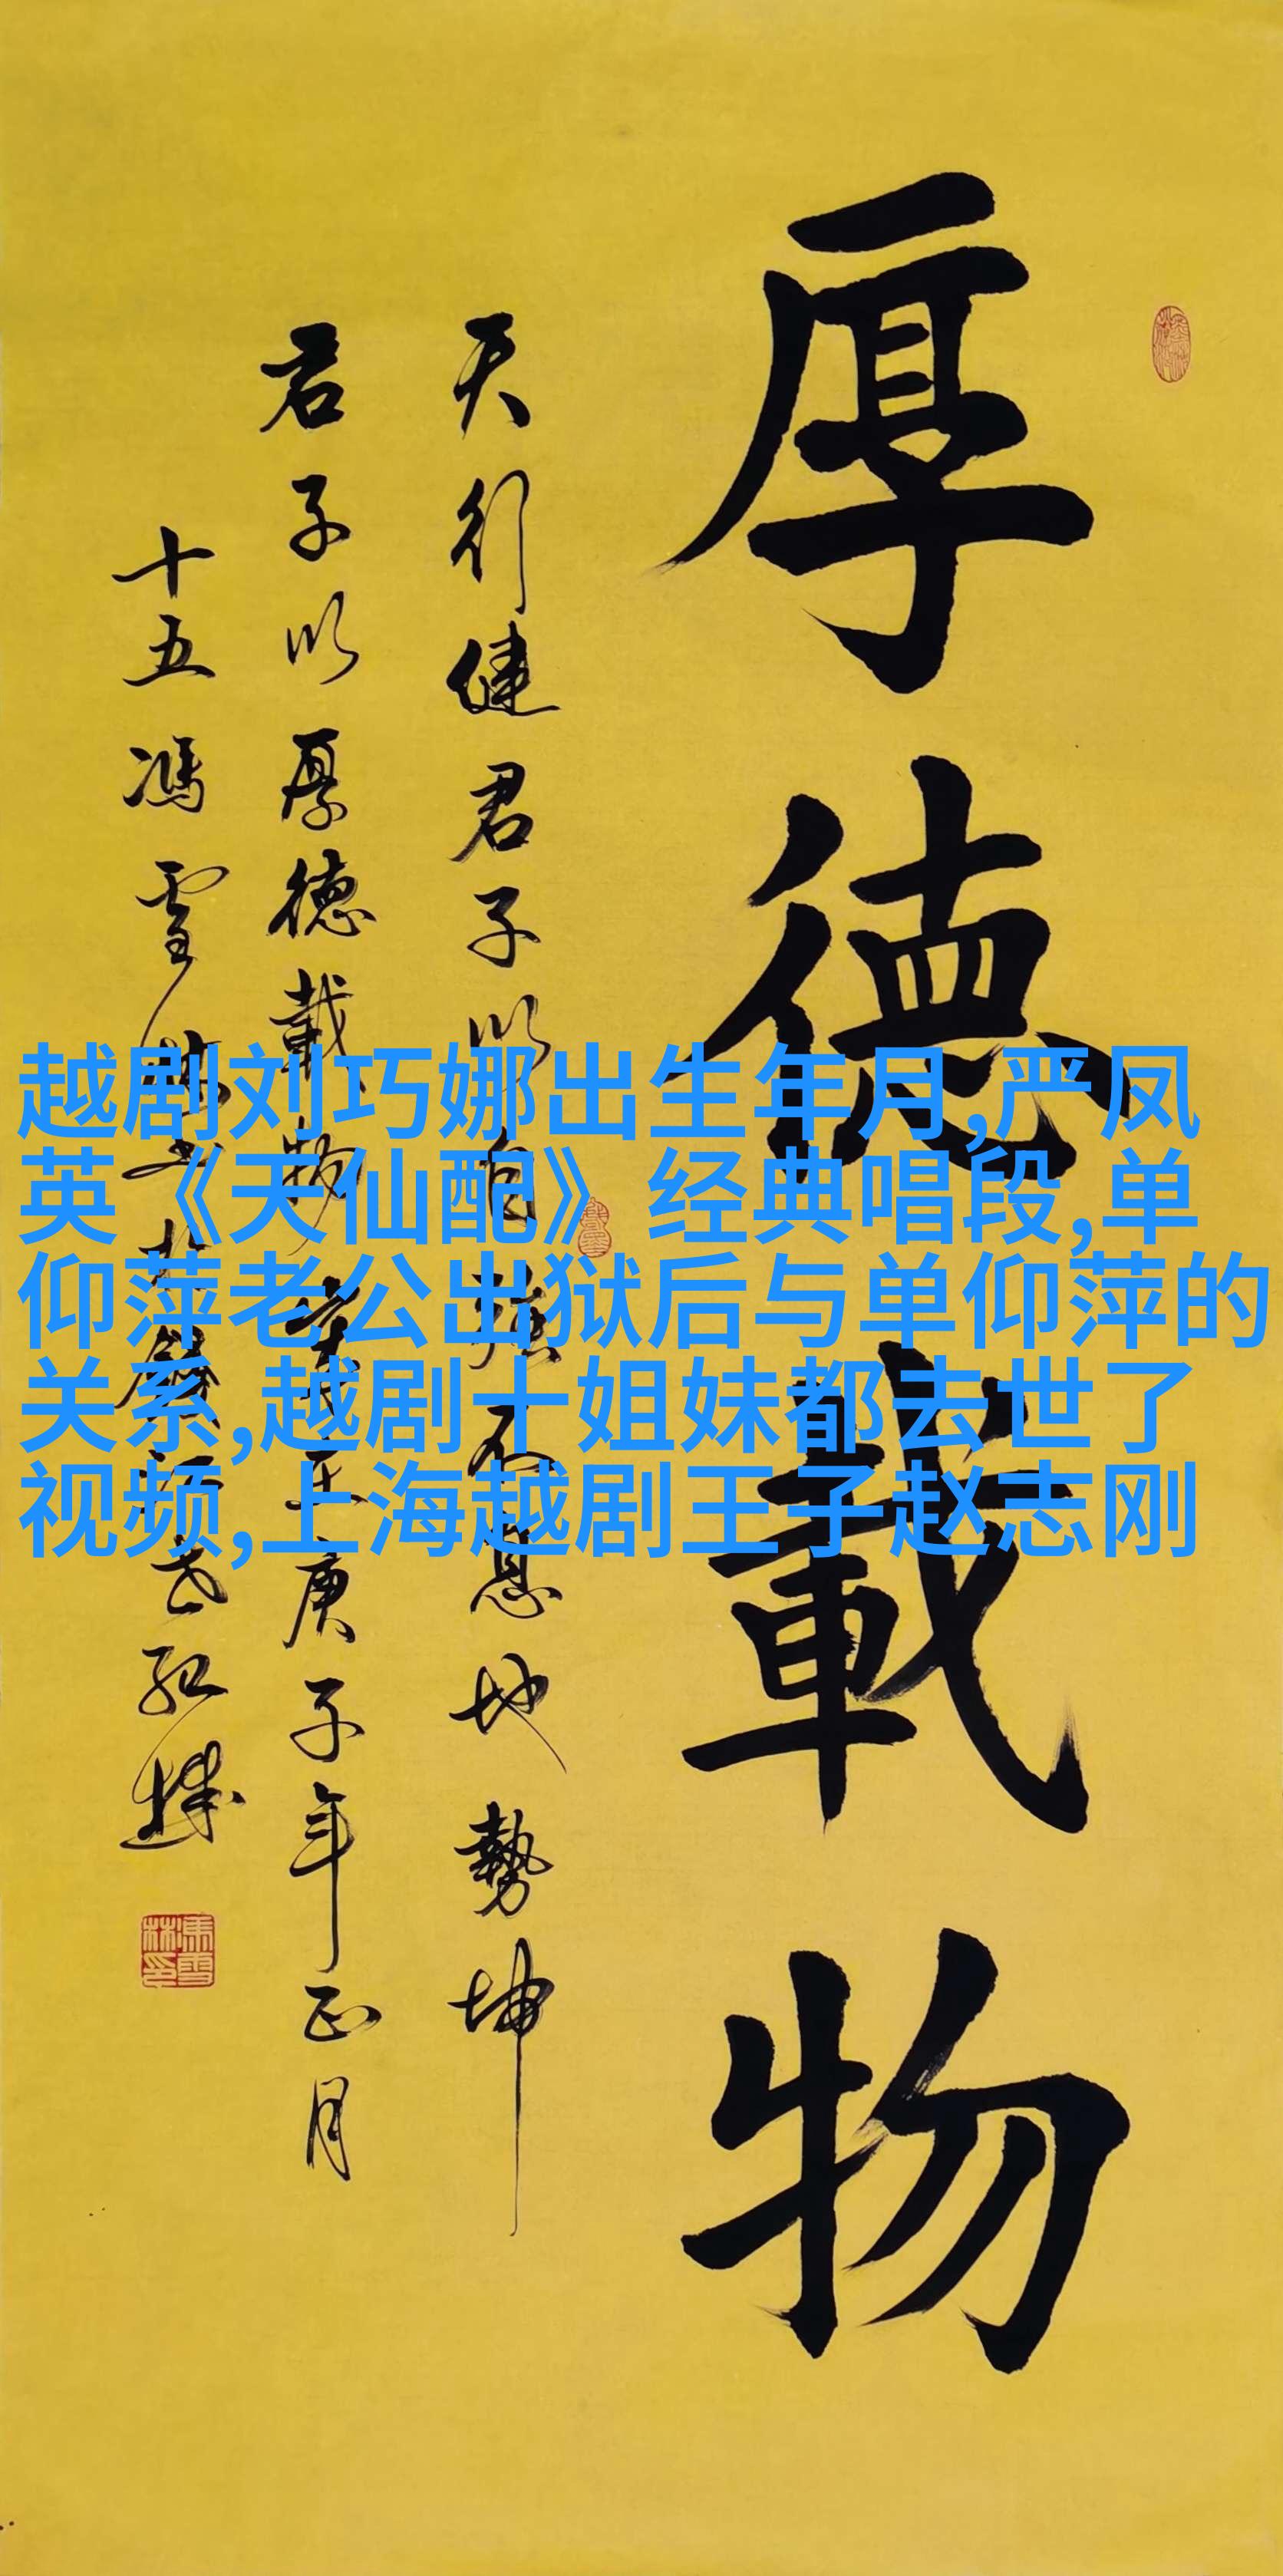 厚德載物
天行健君子以自强不息地勢坤
君子以厚德載物歲在庚子年正月
十五馮雪林书於
馮雪林印
越剧刘巧娜出生年月,严凤
英《天仙配》经典唱段,单
仰萍老公出狱后与单仰萍的
关系,越剧十姐妹都去世了
视频,上海越剧王子赵志刚